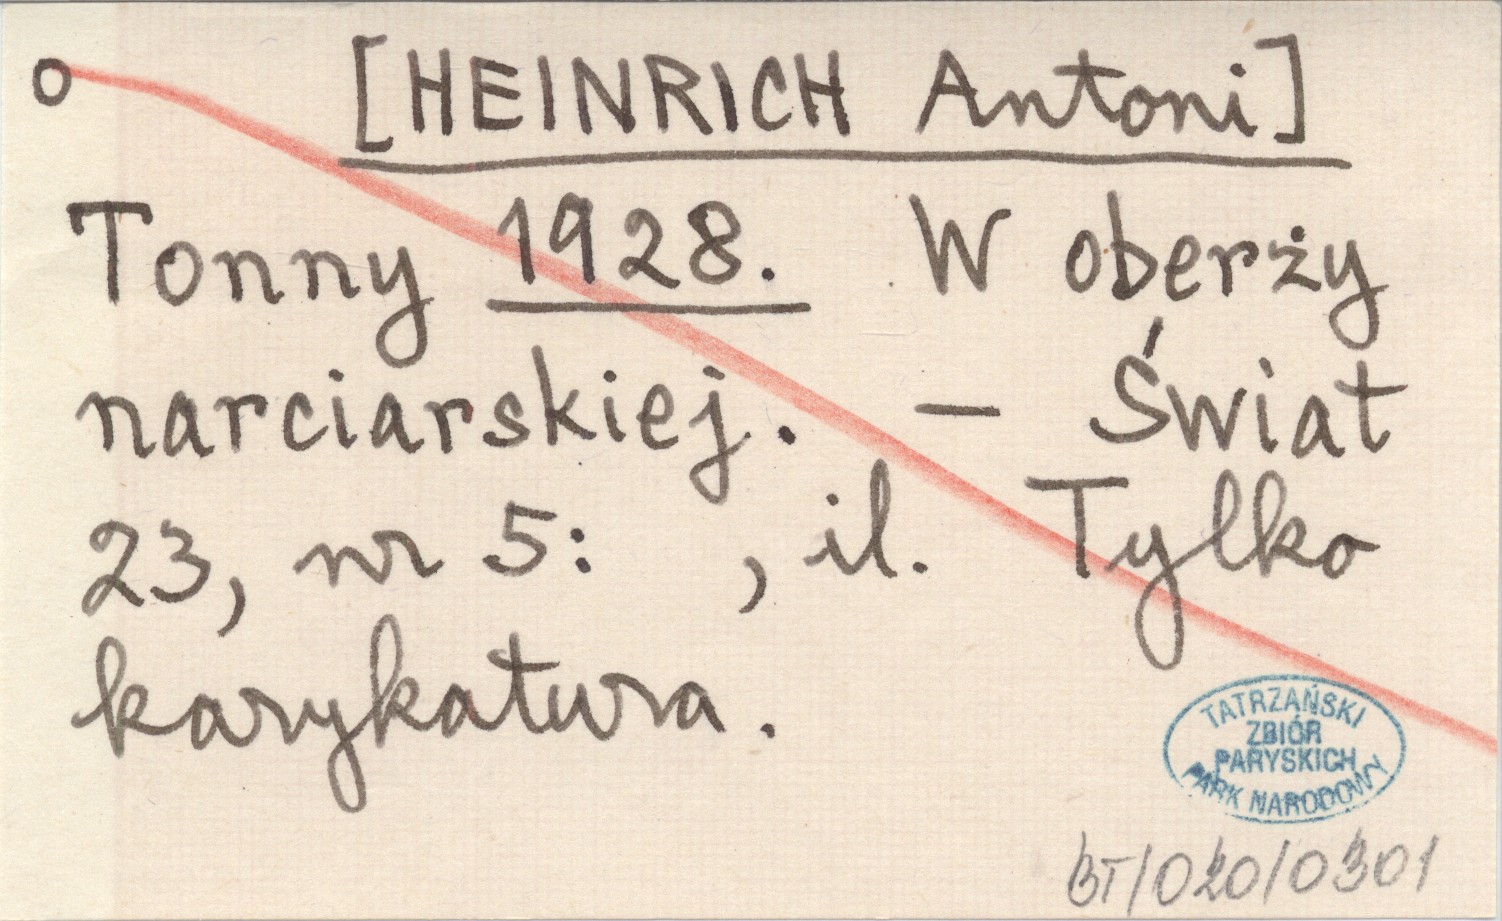 o [HEINRICH Antoni]
Tonny 1928. W oberży
narciarskiej. – Świat
23, nr 5: , il. Tylko
karykatura.
TATRZAŃSKI
ZBIÓR
PARYSKICH
PARK NARODOWY
BT/020/0301